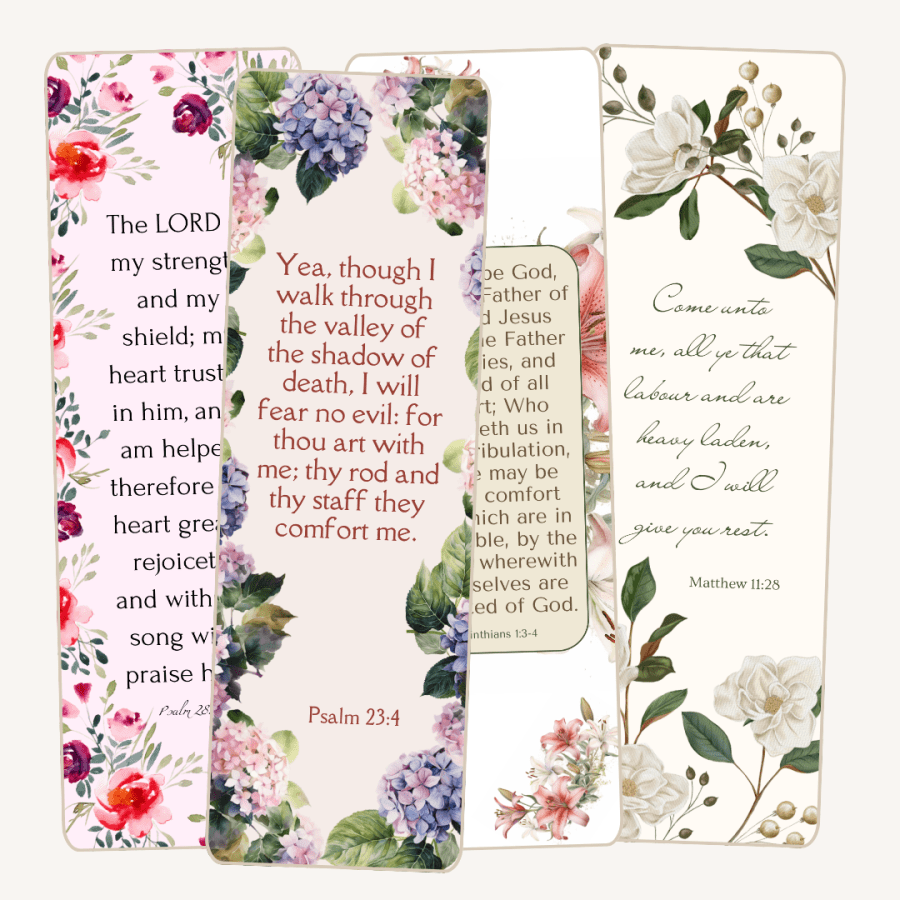 The LORD
my
and my
shield;
heart
in him,
am
therefore
heart
and with
song
praise
Psalm
Yea, though I
walk through
the valley of
the shadow of
death, I will
fear no evil: for
thou art with
me; thy rod and
thy staff they
comfort me.
Psalm 23:4
God,
Father of
Jesus
Father
and
of all
Who
us in
may be
comfort
are in
by the
wherewith
are
of God.
1:3-4
Come unto
me, all ye that
labour and are
heavy laden,
and I will
give you rest.
Matthew 11:28